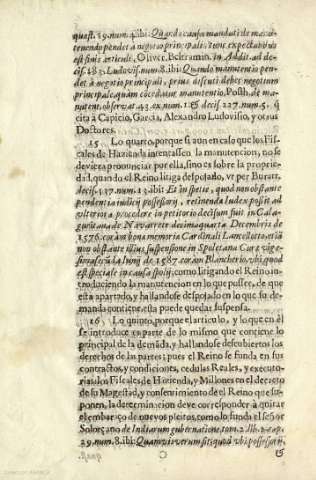 quæst. 19. num. 4. ibi: Quando causa manduti de manu-
tenendo pendet à negotio principali: tunc expectabitur
est finis articuli, Oliver. Beltramin. in Addit. ad de-
cis. 183. Ludovis. num. 8. ibi: Quando manutentio pen-
det à negotio principali, prius discuti debet negotium
principale, quàm concedatur manutentio, Posth. de ma-
nutent. observat. 43. ex num. 1. & decis. 227. num. 5. q̃
cita à Capicio, Garcia, Alexandro Ludovisio, y otros
Doctores.
15 Lo quarto, porque si aun en caso que los Fis-
cales de Hazienda intentassen la manutencion, no se
deviera pronunciar por ella, sino es sobre la proprie-
dad, quando el Reino litiga despojado, ut per Buratt.
decis. 137. num. 13. ibi: Et in specie, quod non obstante
pendentia indicij possessorij, retinenda Iudex possit ad
ulteriora procedere in petitorio decisum fuit in Cala-
guritana de Navarrete decimaquarta Decembris de
1576. coram bonæ memoriæ Cardinali Lancelloto, etiã
non obstante illius suspensione in Spoletana
de 1587. coram Blanchetio, ubi, quod
est speciale in causa spolij, como litigando el Reino in-
troduciendo la manutencion en lo que possee, de que
està apartado, y hallandose despojado en lo que su de-
manda contiene, esta puede quedar suspensa.
16 Lo quinto, porque el articulo, y lo que en èl
se introduce es parte de lo mismo que contiene lo
principal de la demãda, y hallandose descubiertos los
derechos de las partes; pues el Reino se funda en sus
contractos, y condiciones, cedulas Reales, y executo-
rias: los Fiscales de Hazienda, y Millones en el decreto
de su Magestad, y consentimiento del Reino que su-
ponen, la determinacion deve corresponder à quitar
el embaraço de nuevos pleitos, como lo funda el señor
Solorçano de Indiarum gubernatione, tom. 2. lib. 2. cap.
29. num. 8. ibi: Quamvis verum sit, quod ubi possessorij,